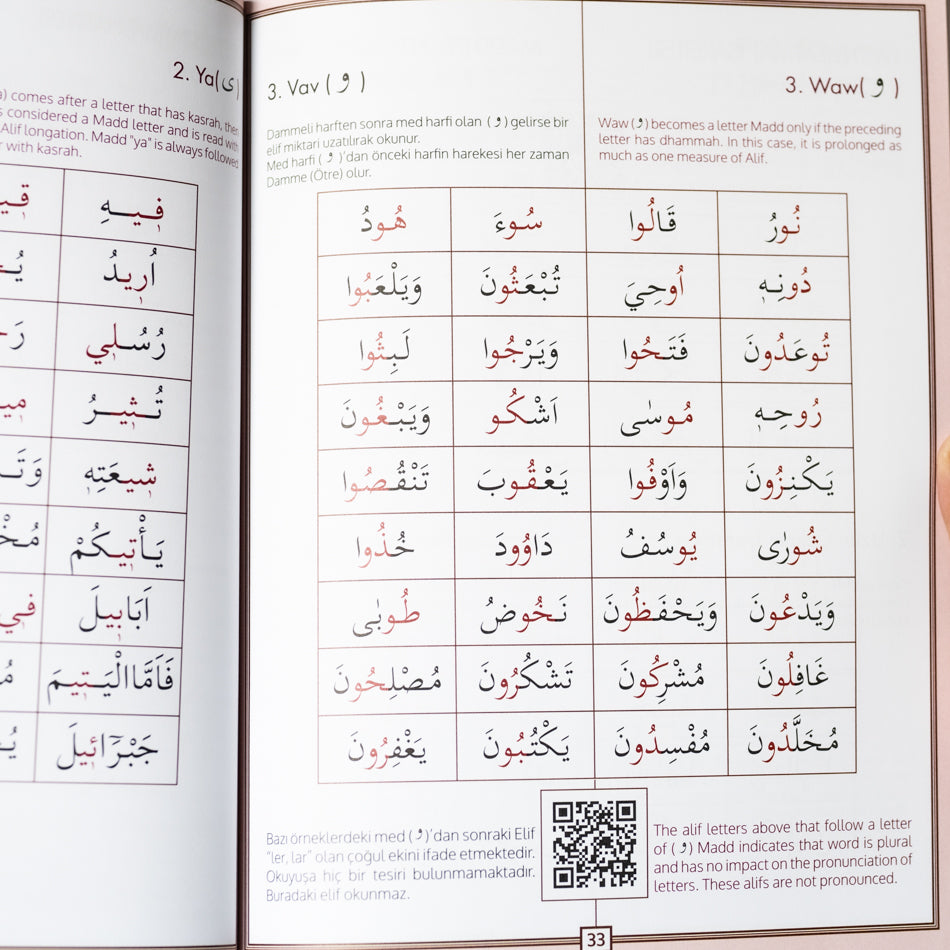 2. Ya(ى)
a) comes after a letter that has kasrah, then
s considered a Madd letter and is read with
Alif longation. Madd "ya" is always followed
r with kasrah.
فٖيهِ
اُرٖيدُ
رُسُلٖي
تُثٖيرُ
شٖيعَتِهٖ
يَأْتٖيكُمْ
اَبَابٖيلَ
فَاَمَّا الْيَتٖيمَ
جَبْرَٓائٖيلَ
3. Vav ( و )
3. Waw( و )
Dammeli harften sonra med harfi olan ( و ) gelirse bir
elif miktarı uzatılırak okunur.
Med harfi ( و )'dan önceki harfin harekesi her zaman
Damme (Ötre) olur.
Waw ( و ) becomes a letter Madd only if the preceding
letter has dhammah. In this case, it is prolonged as
much as one measure of Alif.
نُورُ قَالُوا سُوءَ هُودُ
دُونِهٖ اُوحِيَ تُبْعَثُونَ وَيَلْعَبُوا
تُوعَدُونَ فَتَحُوا وَيَرْجُوا لَبِثُوا
رُوحِهٖ مُوسٰى اَشْكُو وَيَبْغُونَ
يَكْنِزُونَ وَاَوْفُوا يَعْقُوبَ تَنْقُصُوا
شُورٰى يُوسُفُ دَاوُودَ خُذُوا
وَيَدْعُونَ وَيَحْفَظُونَ نَخُوضُ طُوبٰى
غَافِلُونَ مُشْرِكُونَ تَشْكُرُونَ مُصْلِحُونَ
مُخَلَّدُونَ مُفْسِدُونَ يَكْتُبُونَ يَغْفِرُونَ
Bazı örneklerdeki med ( و )'dan sonraki Elif
"ler, lar" olan çoğul ekini ifade etmektedir.
Okuyuşa hiç bir tesiri bulunmamaktadır.
Buradaki elif okunmaz.
The alif letters above that follow a letter
of ( و ) Madd indicates that word is plural
and has no impact on the pronunciation of
letters. These alifs are not pronounced.
33